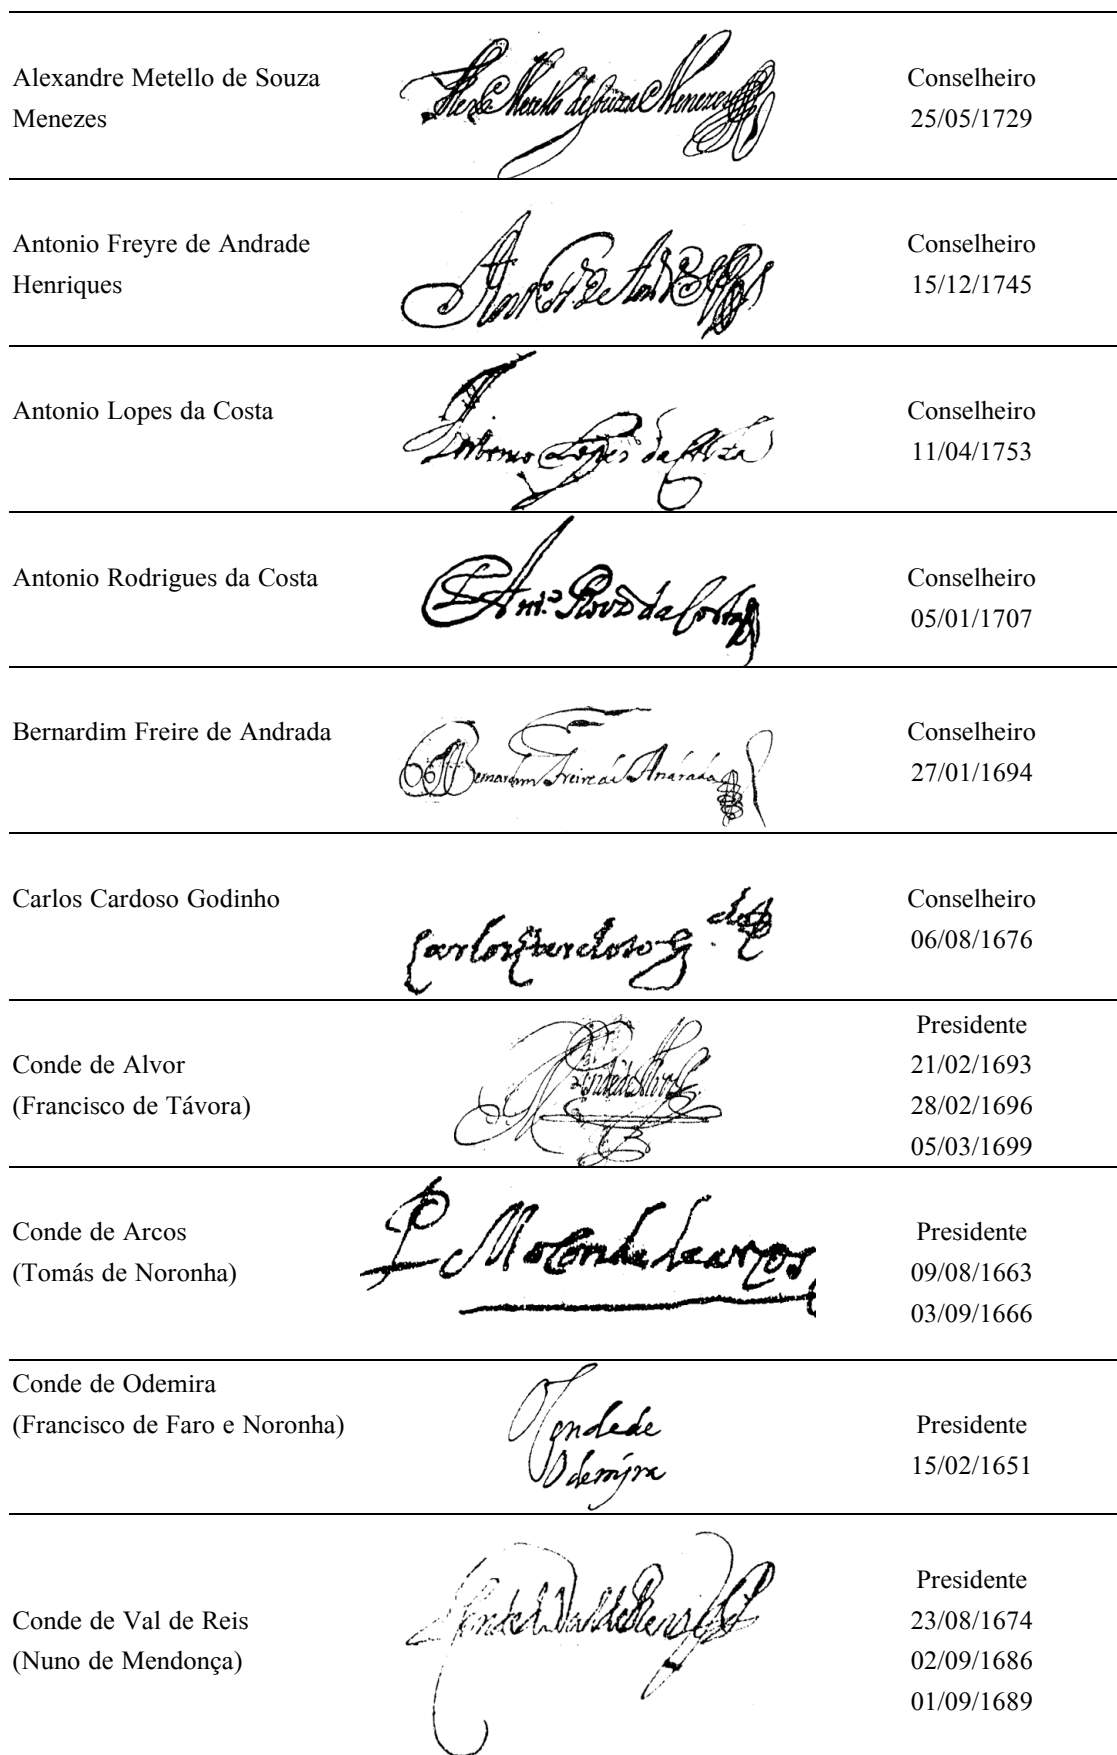 Alexandre Metello de Souza
Menezes
Alexe Metello de Souza Menezes
Conselheiro
25/05/1729
Antonio Freyre de Andrade
Henriques
Conselheiro
15/12/1745
Antonio Lopes da Costa
Antonio Lopes da Costa
Conselheiro
11/04/1753
Antonio Rodrigues da Costa
Ant.º Roiz da Costa
Conselheiro
05/01/1707
Bernardim Freire de Andrada
Bernardim Freire de Andrada
Conselheiro
27/01/1694
Carlos Cardoso Godinho
Carlos Cardoso G
Conselheiro
06/08/1676
Conde de Alvor
(Francisco de Távora)
Conde de Alvor
Presidente
21/02/1693
28/02/1696
05/03/1699
Conde de Arcos
(Tomás de Noronha)
Conde de arcos
Presidente
09/08/1663
03/09/1666
Conde de Odemira
(Francisco de Faro e Noronha)
Conde de
Odemyra
Presidente
15/02/1651
Conde de Val de Reis
(Nuno de Mendonça)
Conde de Val de Reys
Presidente
23/08/1674
02/09/1686
01/09/1689